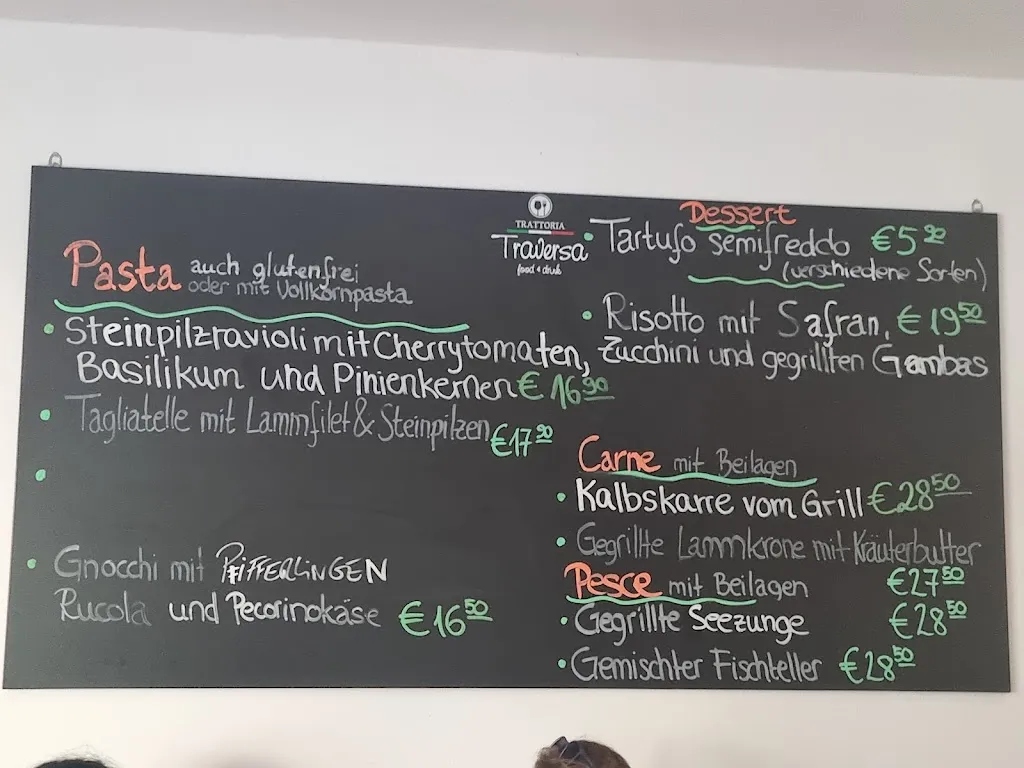 TRATTORIA
Traversa
food & drink
Pasta auch glutenfrei
oder mit Vollkornpasta
• Steinpilzravioli mit Cherrytomaten,
Basilikum und Pinienkernen € 16 90
• Tagliatelle mit Lammfilet & Steinpilzen €17 90
•
• Gnocchi mit PFIFFERLINGEN
Rucola und Pecorinokäse €16 50
Dessert
• Tartufo semifreddo €5 90
(verschiedene Sorten)
• Risotto mit Safran, €19 50
Zucchini und gegrillten Gambas
Carne mit Beilagen
• Kalbskarre vom Grill €28 50
• Gegrillte Lammkrone mit Kräuterbutter
€27 50
Pesce mit Beilagen
• Gegrillte Seezunge €28 50
• Gemischter Fischteller €28 50